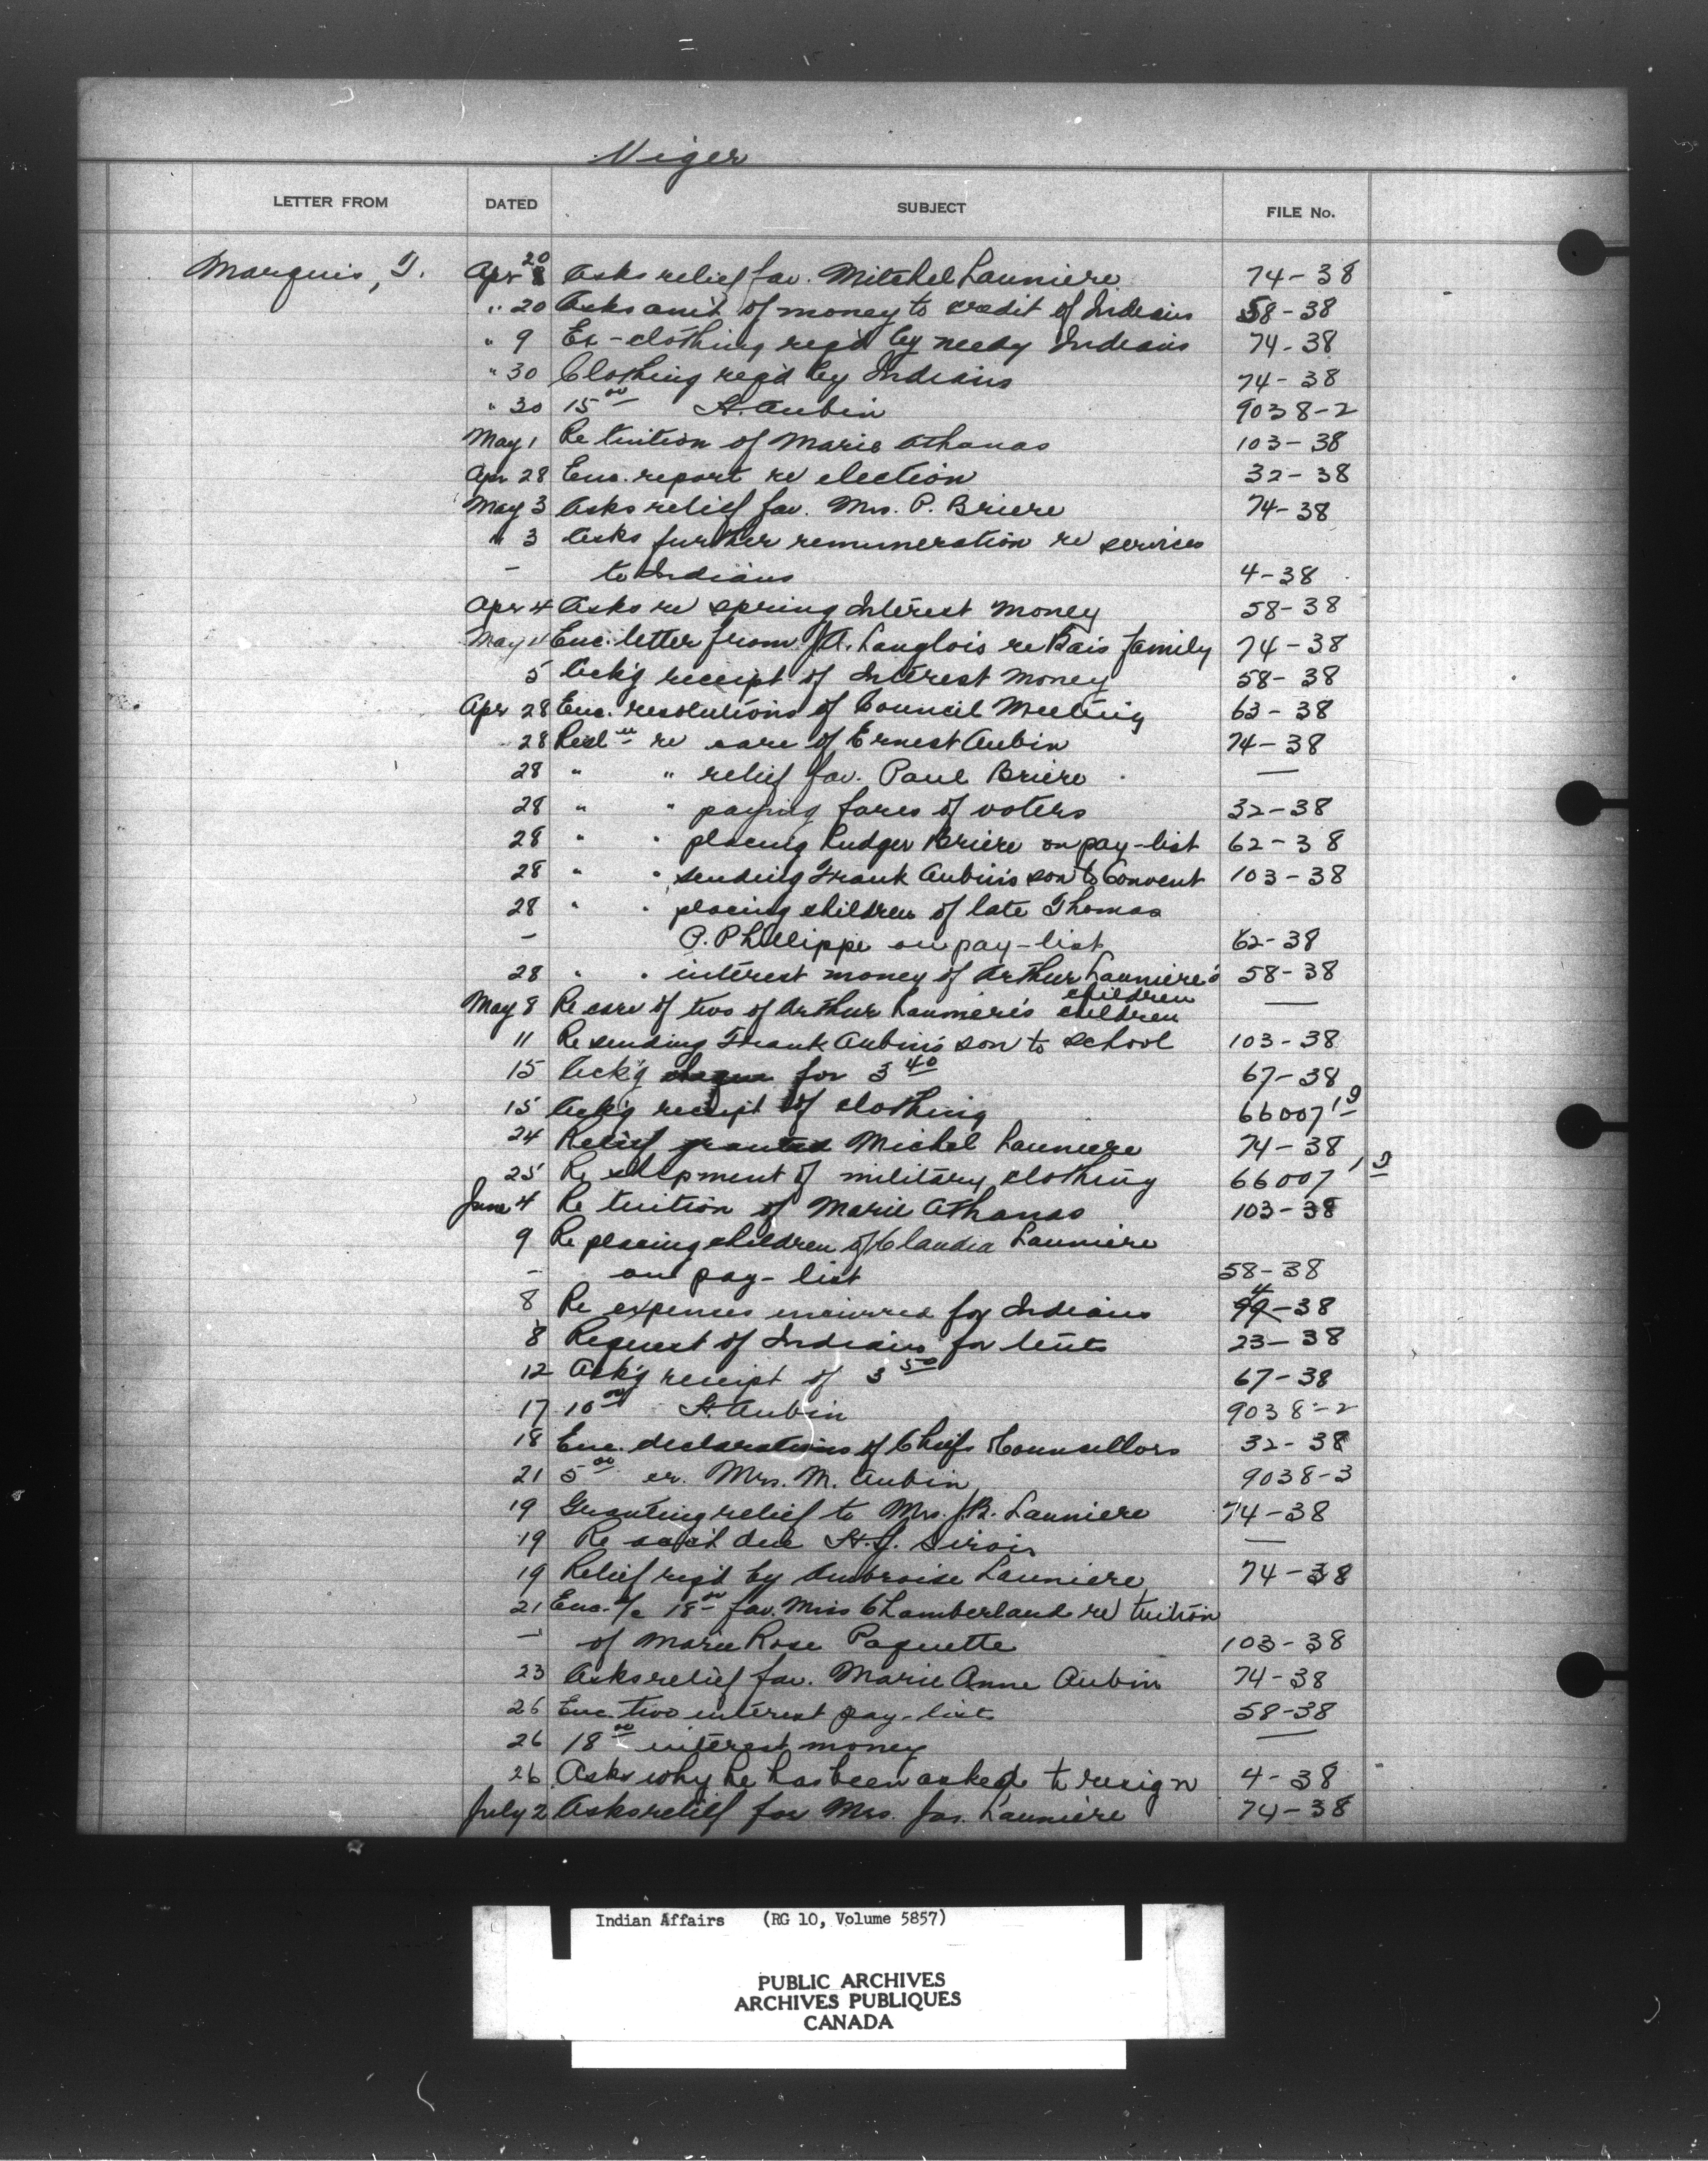 Viger
LETTER FROM DATED SUBJECT FILE No.
Marquis, T. Apr 20 Asks relief fav. Mitchel Launiere 74-38
" 20 Asks am't of money to credit of Indians 58-38
" 9 Ex-clothing reqd by needy Indians 74-38
" 30 Clothing reqd by Indians 74-38
" 30 15 00 St. Aubin 9038-2
May 1 Re tuition of Marie Athanas 103-38
Apr 28 Enc. report re election 32-38
May 3 Asks relief fav. Mrs. P. Briere 74-38
" 3 Asks further remuneration re services
- to Indians 4-38
Apr 4 Asks re spring Interest Money 58-38
May 4 Enc. letter from J.A. Langlois re Bais family 74-38
5 Ack'g receipt of Interest Money 58-38
Apr 28 Enc. resolutions of Council Meeting 63-38
28 Resl'n re care of Ernest Aubin 74-38
28 " " relief fav. Paul Briere —
28 " " paying fares of voters 32-38
28 " " placing Ludger Briere on pay-list 62-38
28 " " sending Frank Aubin's son to Convent 103-38
28 " " placing children of late Thomas
- P. Phillippe on pay-list 62-38
28 " " interest money of Arthur Launiere's children 58-38
May 8 Re care of two of Arthur Launiere's children —
11 Re sending Frank Aubin's son to school 103-38
15 Ack'g cheque for 3 40 67-38
15 Ack'g receipt of clothing 66007
24 Relief granted Michel Launiere 74-38
25 Re shipment of military clothing 66007
June 4 Re tuition of Marie Athanas 103-38
9 Re placing children of Claudia Launiere
- on pay-list 58-38
8 Re expenses incurred for Indians 4-38
8 Request of Indians for tents 23-38
12 Ack'g receipt of 3 50 67-38
17 10 00 St. Aubin 9038-2
18 Enc. declarations of Chiefs & Counsellors 32-38
21 5 00 cr. Mrs. M. Aubin 9038-3
19 Granting relief to Mrs. J.B. Launiere 74-38
19 Re acc't due St. G. Sirois —
19 Relief reqd by Ambroise Launiere 74-38
21 Enc. a/c 18 00 fav. Miss Chamberland re tuition
- of Marie Rose Paquette 103-38
23 Asks relief fav. Marie Anne Aubin 74-38
26 Enc. two interest pay-lists 58-38
26 18 00 interest money —
26 Asks why he has been asked to resign 4-38
July 2 Asks relief for Mrs. Jas. Launiere 74-38
Indian Affairs (RG 10, Volume 5857)
PUBLIC ARCHIVES
ARCHIVES PUBLIQUES
CANADA